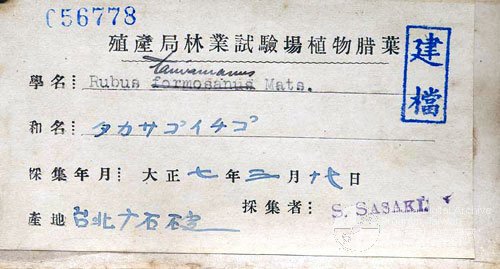 056778
殖產局林業試驗場植物腊葉
建檔
taiwanianus
學名： Rubus formosanus Mats.
和名： タカサゴイチゴ
採集年月： 大正七年三月十七日
採集者： S. SASAKI
產地 台北